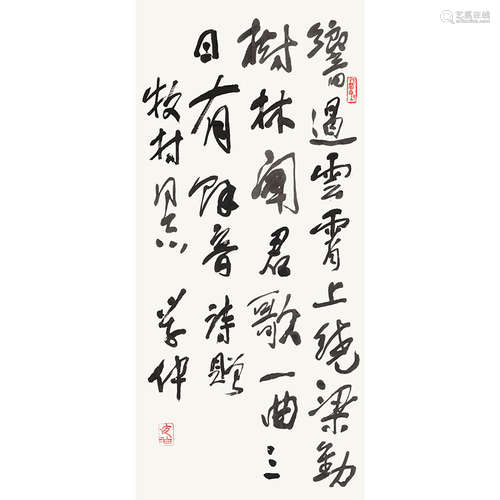 響遏雲霄上绕梁動
樹林聞君歌一曲三
日有餘音 诗贈
牧村同志 学仲